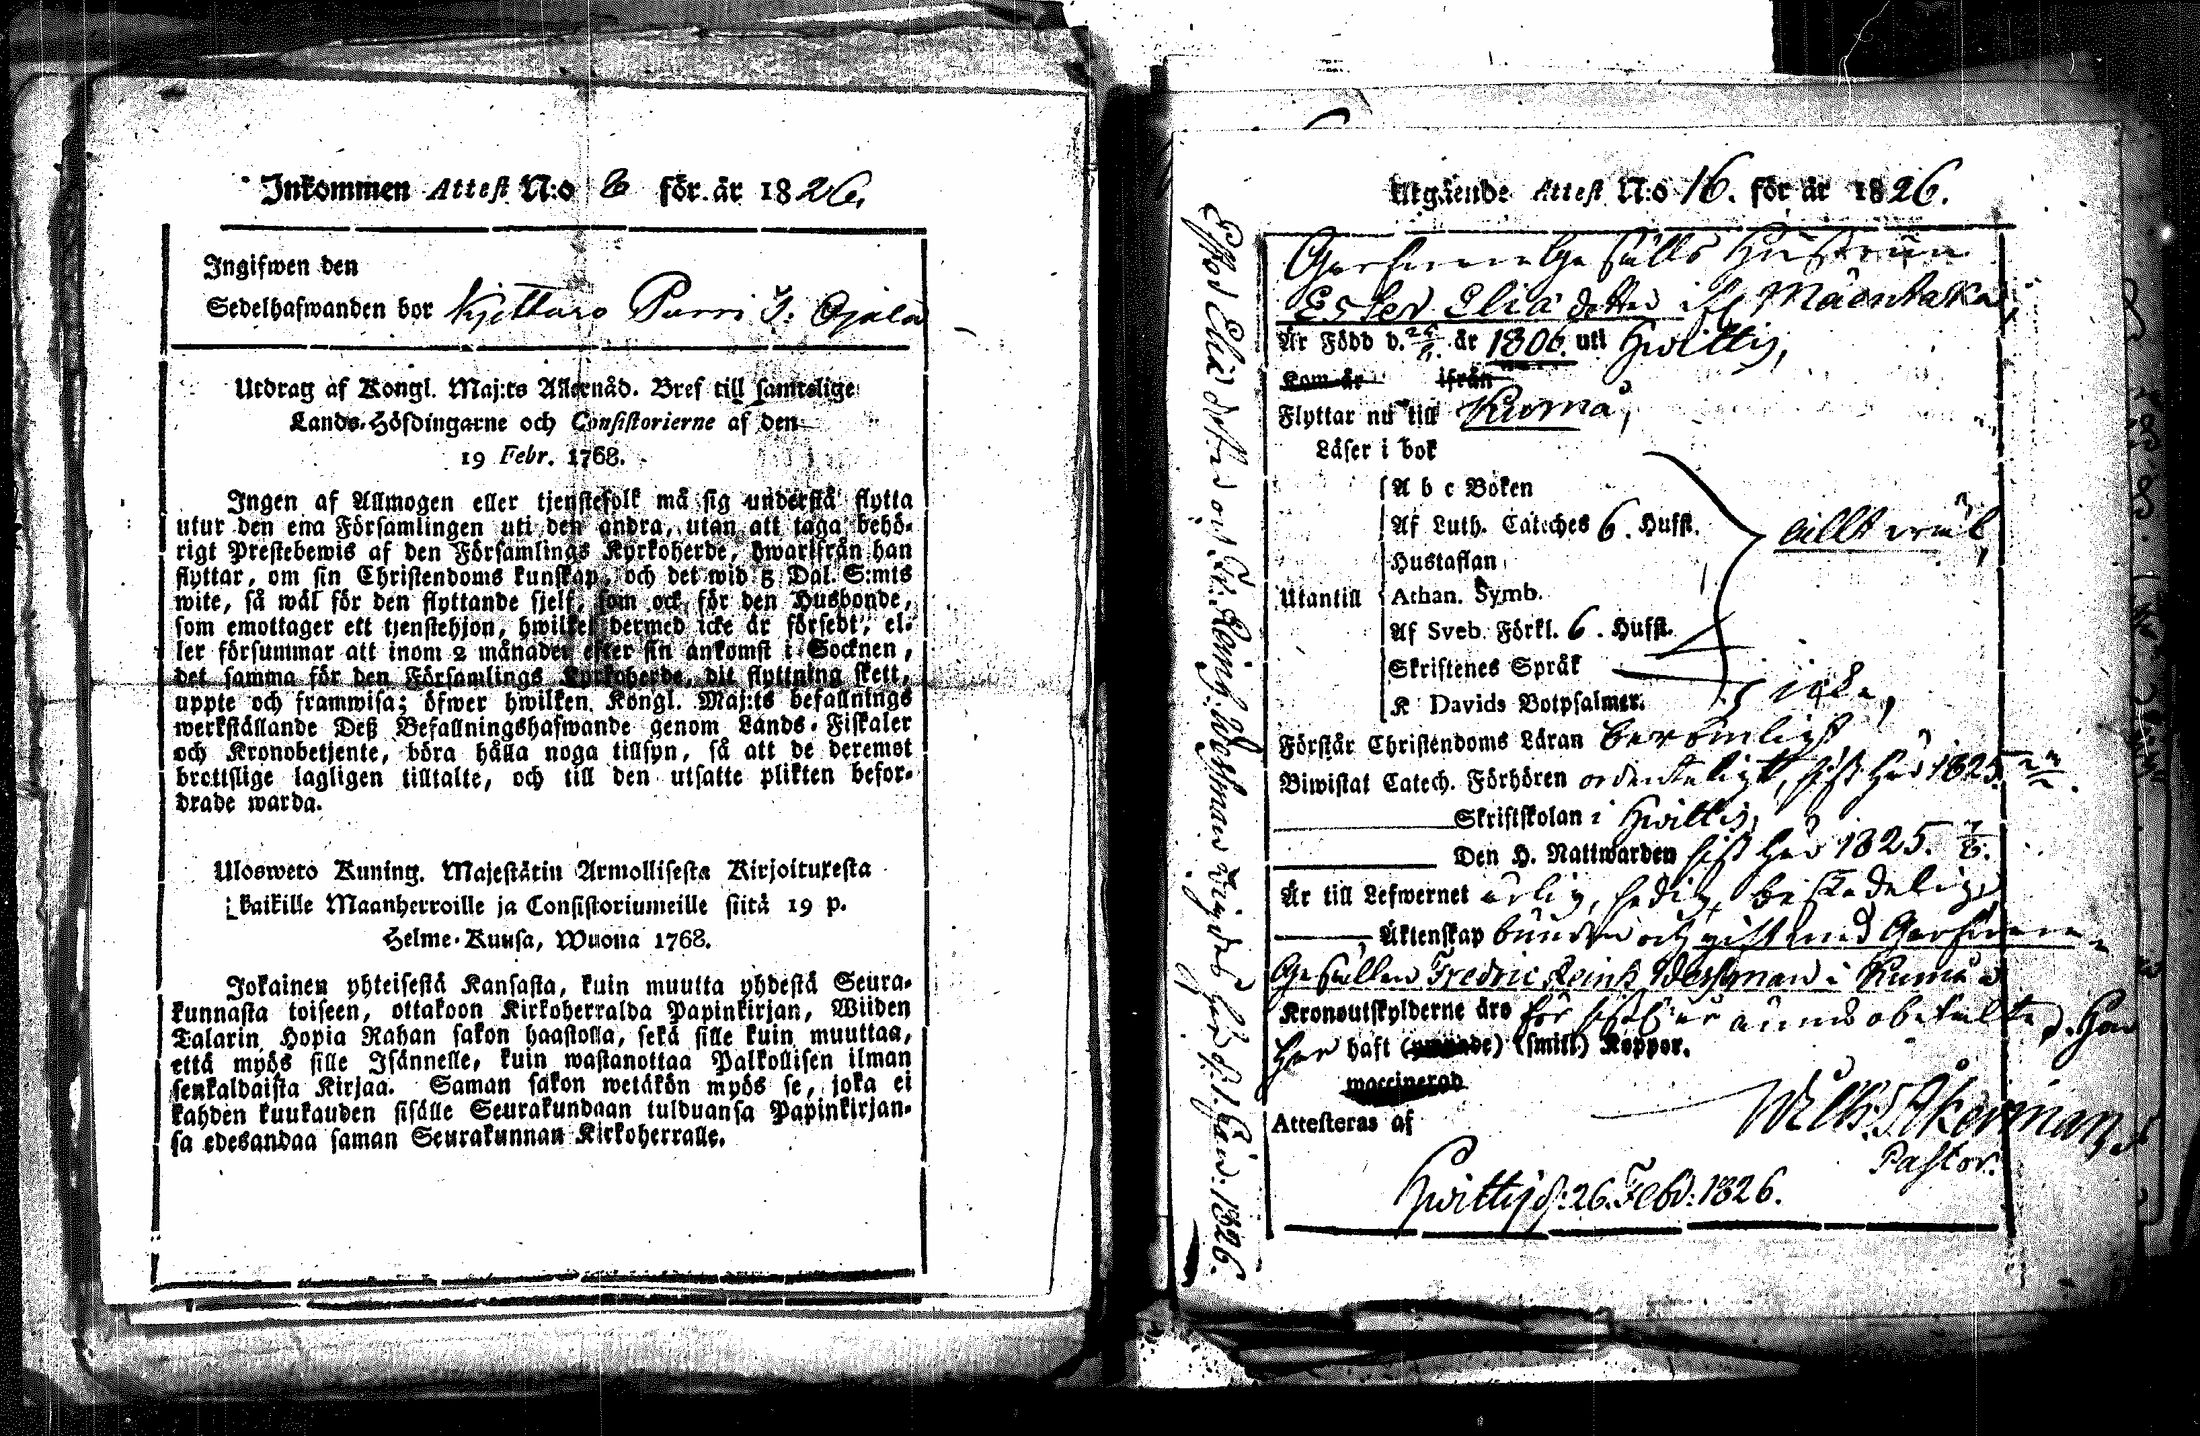 Inkommen Attest N:o 8 för. år 1826.
Ingifwen den
Sedelhafwanden bor Kjettaro Purri I. Ojala
Utdrag af Kongl. Maj:ts Allernåd. Bref till samtelige
Lands-Höfdingarne och Consistorierne af den
19 Febr. 1768.
Ingen af Allmogen eller tjenstefolk må sig understå flytta
utur den ena Församlingen uti den andra, utan att taga behö-
rigt Prestebewis af den Församlings Kyrkoherde, hwarifrån han
flyttar, om sin Christendoms kunskap, och det wid 5 Dal. S:mts
wite, så wäl för den flyttande sjelf, som ock för den Husbonde,
som emottager ett tjenstehjon, hwilket dermed icke är försedt, el-
ler försummar att inom 2 månader efter sin ankomst i Socknen,
det samma för den Församlings Kyrkoherde, dit flyttning skett,
uppte och framwisa; öfwer hwilken Kongl. Maj:ts befallnings
werkställande Deß Befallningshafwande genom Lands-Fiskaler
och Kronobetjente, böra hålla noga tillsyn, så att de deremot
brottslige lagligen tilltalte, och till den utsatte plikten befor-
drade warda.
Ulosweto Kuning. Majestätin Armollisesta Kirjoituxesta
kaikille Maanherroille ja Consistoriumeille siitä 19 p.
Helme-Kuusa, Wuona 1768.
Jokainen yhteisestä Kansasta, kuin muutta yhdestä Seura-
kunnasta toiseen, ottakoon Kirkoherralda Papinkirjan, Wiiden
Talarin Hopia Rahan sakon haastolla, sekä sille kuin muuttaa,
että myös sille Isännelle, kuin wastanottaa Palkollisen ilman
senkaldaista Kirjaa. Saman sakon wetäkön myös se, joka ei
kahden kuukauden sisälle Seurakundaan tulduansa Papinkirjan-
sa edesandaa saman Seurakunnan Kirkoherralle.
Utgående Attest N:o 16. för år 1826.
Garfvare Gesälls Hustrun
Ester Elia dotter ifr Mäenhaka,
Är Född d. 25/11. år 1806. uti Hwittis,
Kom år ifrån
Flyttar nu till Kumå,
Läser i bok
A b c Boken
Af Luth. Cateches 6. Hufst. allt väl,
Hustaflan
Utantill Athan. Symb.
Af Sveb. Förkl. 6. Hufst.
Skriftenes Språk
K Davids Botpsalmer. icke,
Förstår Christendoms Läran berömligt
Biwistat Catech. Förhören ordenteligt, sist här 1825.
Skriftskolan i Hwittis,
Den H. Nattwarden sist här 1825. 7/8.
Är till Lefwernet ärlig, sedig, beskedelig,
Äktenskap bunden och gift med Garfvare
Gesällen Fredric Reinh Wessman i Kumå
Kronoutskylderne äro för sistl: år ännu obetalte, d. Hon
Har haft (smitt.) Koppor.
waccinerad
Attesteras af Wilh: Åkerman
Pastor.
Hwittis d: 26. Febr: 1826.
Ester Elia dotter och Fr. Reinh. Wessman vigdes här d. 1. Jan: 1826.